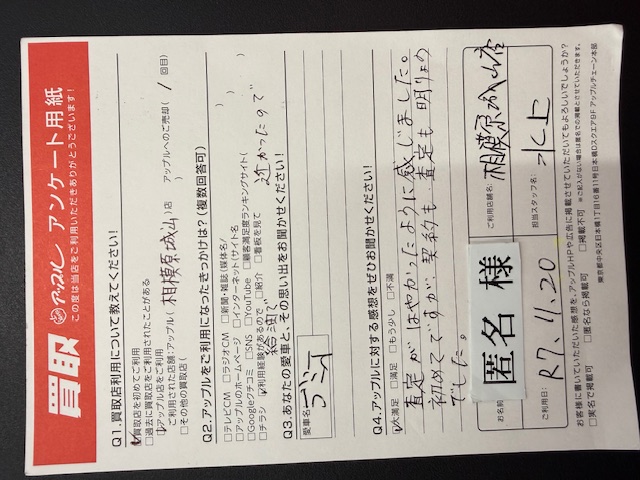 買取 アップル アンケート用紙
この度は当店をご利用いただきありがとうございます!
Q1.買取店利用について教えてください!
□買取店を初めてご利用
□過去に買取店をご利用されたことがある
□アップル店をご利用
ご利用された店舗:アップル(相模原城山)店 アップルへのご売却(1回目)
□その他の買取店( )
Q2.アップルをご利用になったきっかけは?(複数回答可)
□テレビCM □ラジオCM □新聞・雑誌(媒体名/ )
□アップルのホームページ □インターネット(サイト名 )
□Googleクチコミ □SNS □YouTube □顧客満足度ランキングサイト( )
□チラシ □利用経験があるので □紹介 □看板を見て 近かったので
給油で
Q3.あなたの愛車と、その思い出をお聞かせください!
愛車名
デミオ
Q4.アップルに対する感想をぜひお聞かせください!
□大満足 □満足 □もう少し □不満
査定がはやかったように感じました。
初めてですが、契約も査定も明りょう
でした。
お名前 匿名 様
ご利用店舗名: 相模原城山店
ご利用日: R7.11.20
担当スタッフ名: 水上
お客様に書いていただいた感想を、アップルHPや広告に掲載させていただいてもよろしいでしょうか?
□実名で掲載可 □匿名なら掲載可 □掲載不可 ※ご記入がない場合は匿名での掲載とさせていただきます。
東京都中央区日本橋1丁目16番11号日本橋Dスクエア8F アップルチェーン本部